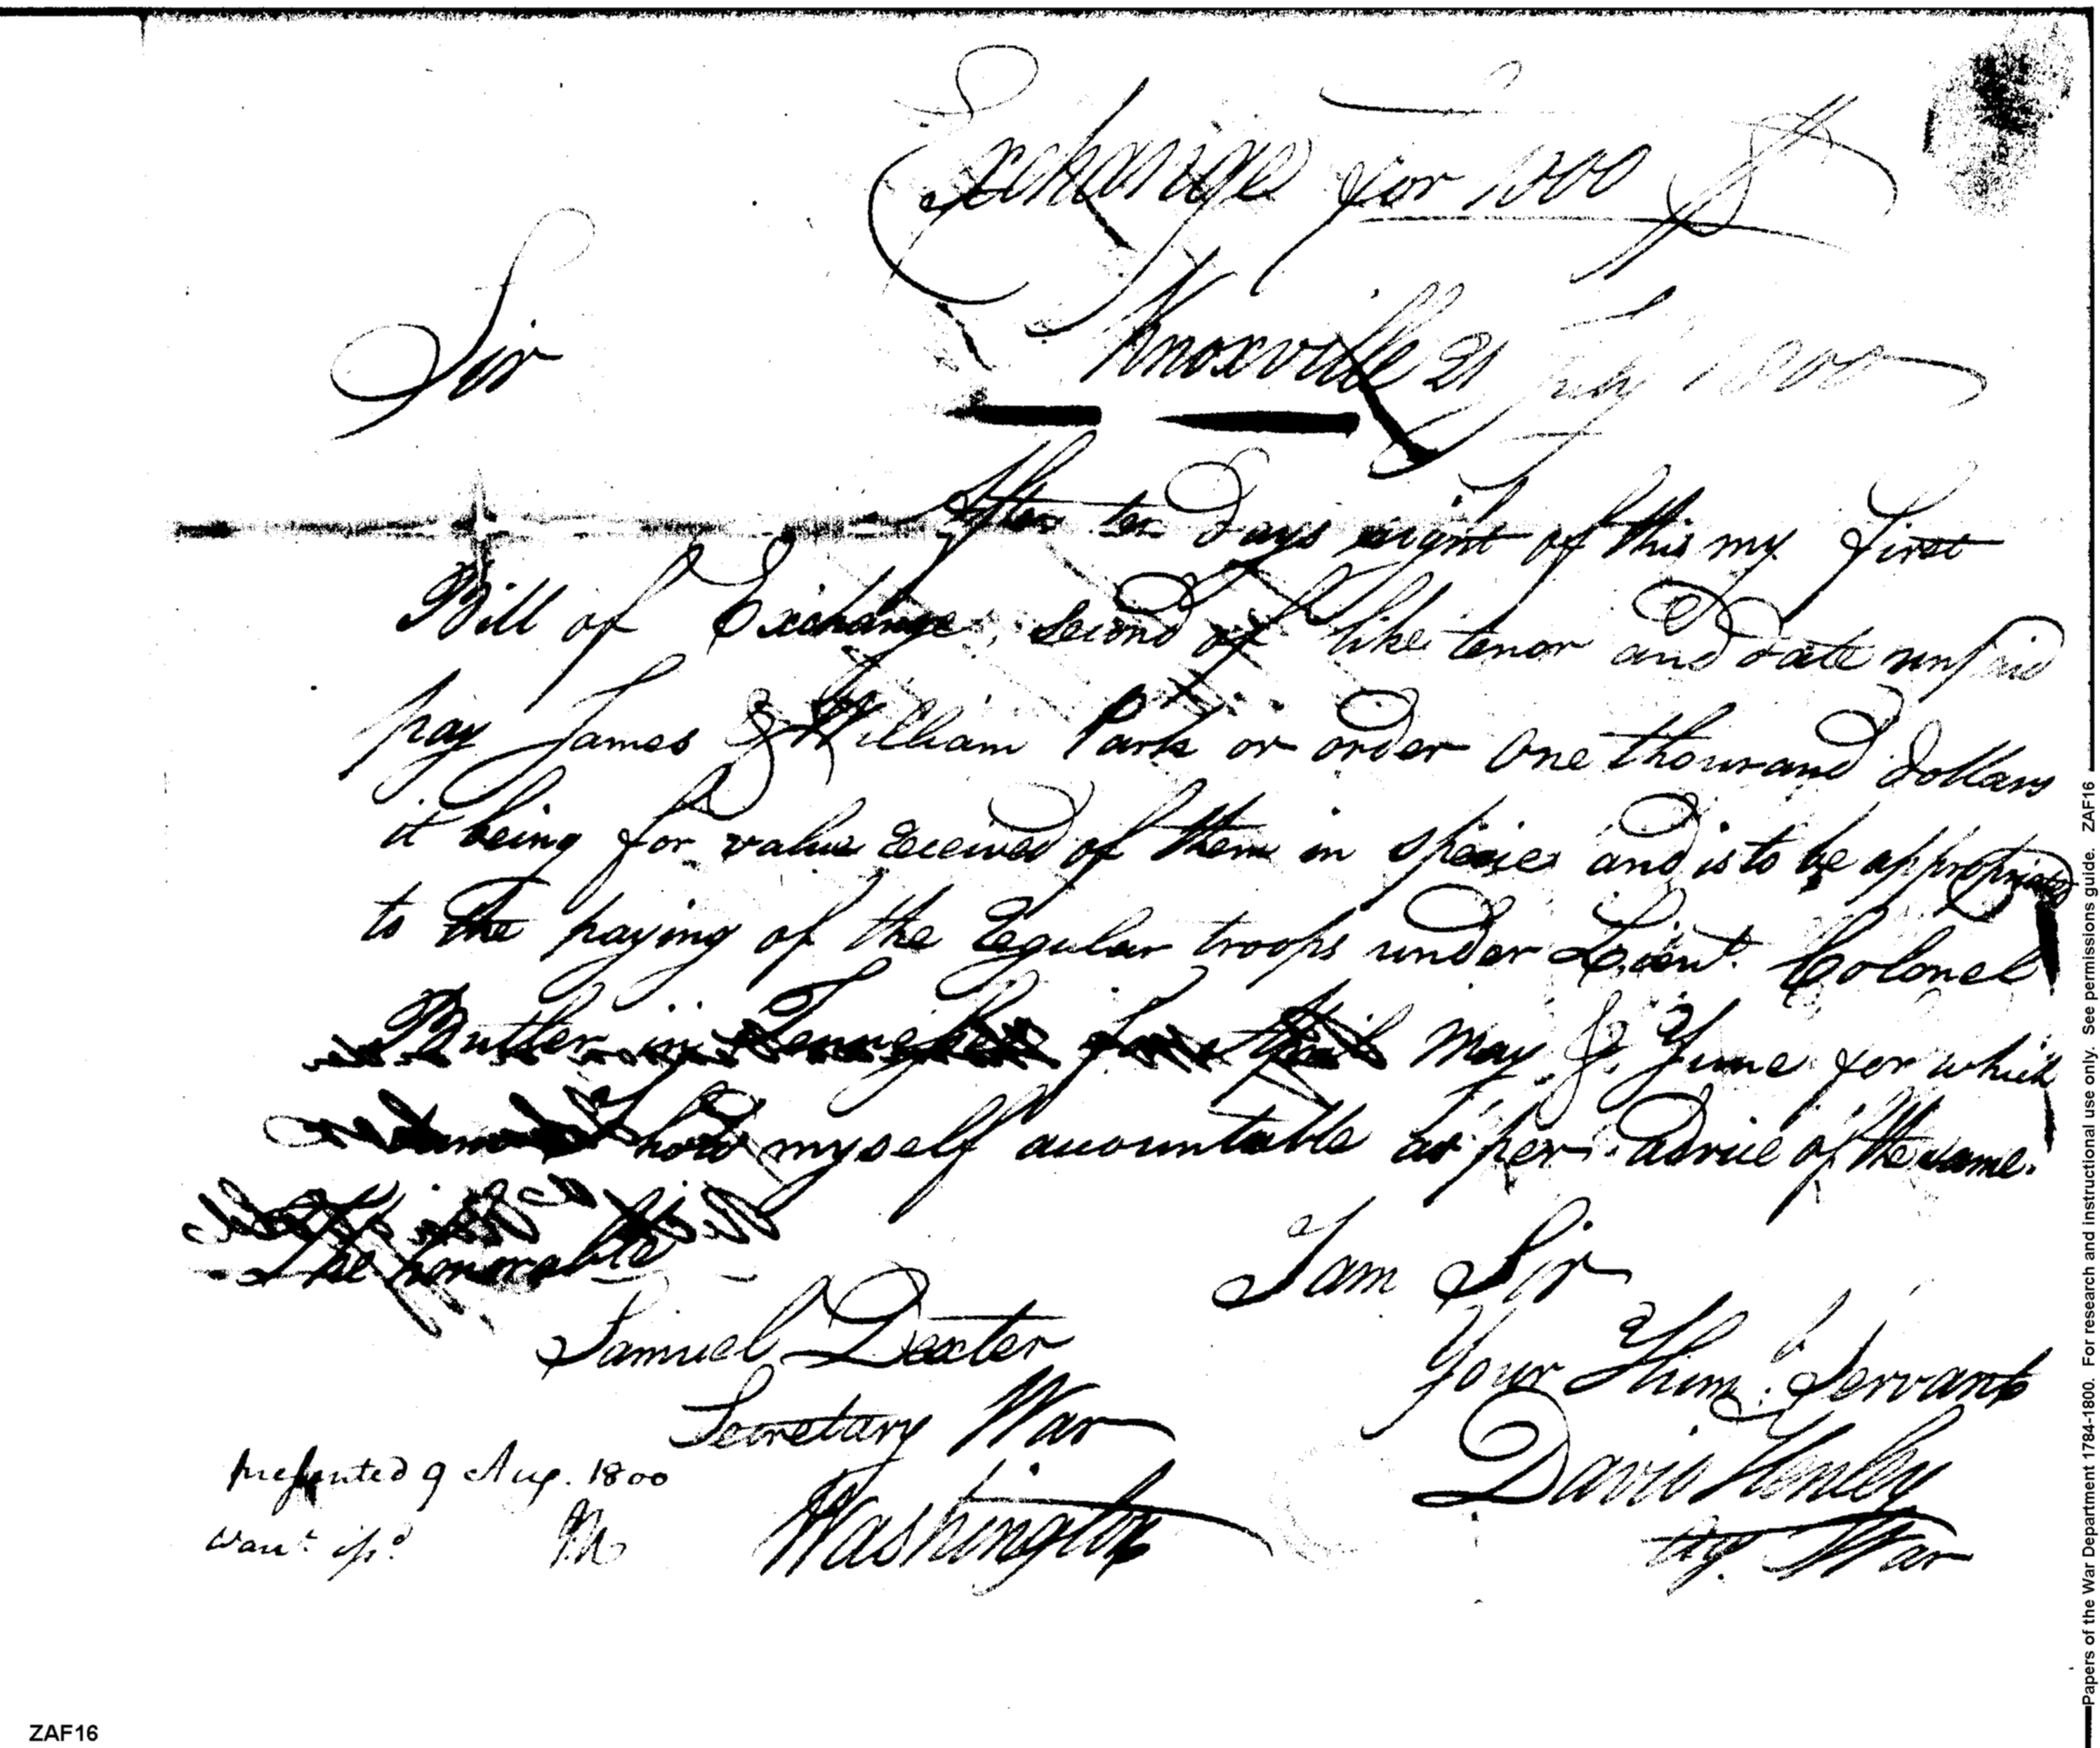 Exchange for 1000 $
Knoxville 21 July 1800
Sir
After ten Days sight of this my first
Bill of Exchange, second of like tenor and date unpaid
pay James & William Park or order One thousand dollars
it being for value received of them in specie and is to be appropriated
to the paying of the regular troops under Lieut. Colonel
Butler in May & June for which
hold myself accountable as per advice of the same.
The honorable
I am Sir
Samuel Dexter
Your Hum. Servant
Secretary War
David Henley
presented 9 Aug. 1800
Washington
Ag. War
Warr.t
Papers of the War Department 1784-1800. For research and instructional use only. See permissions guide. ZAF16
ZAF16